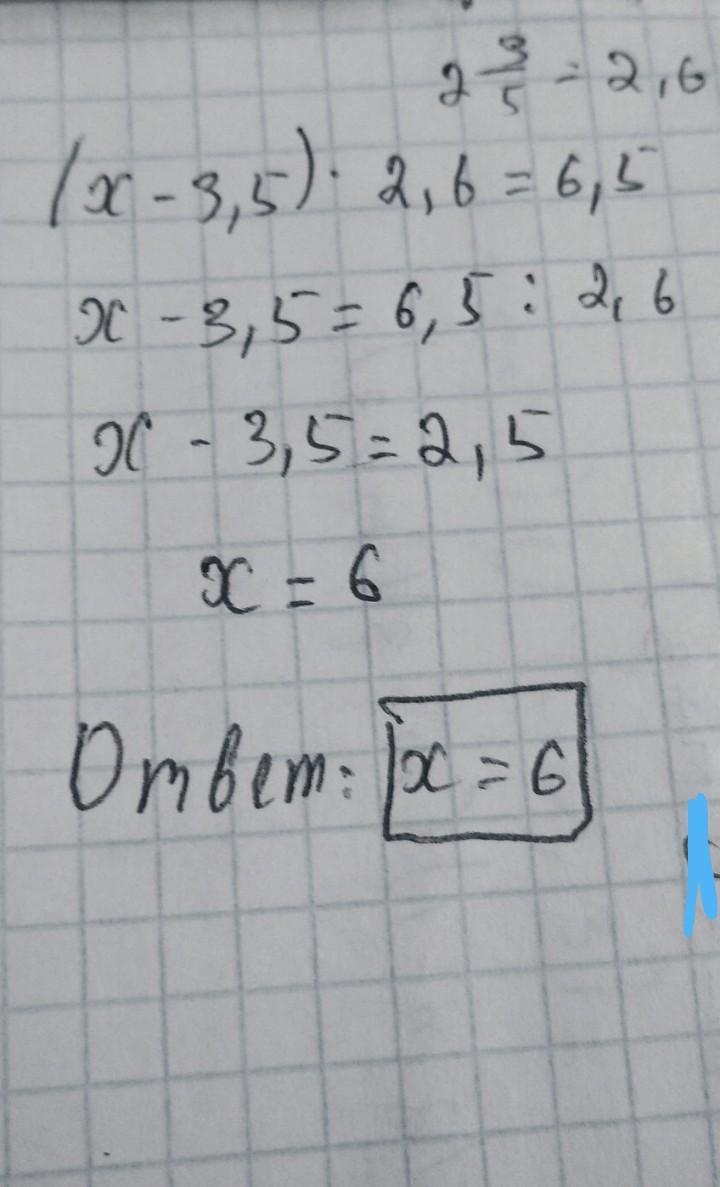 2 3/5 = 2,6
(x - 3,5) · 2,6 = 6,5
x - 3,5 = 6,5 : 2,6
x - 3,5 = 2,5
x = 6
Ответ: x = 6